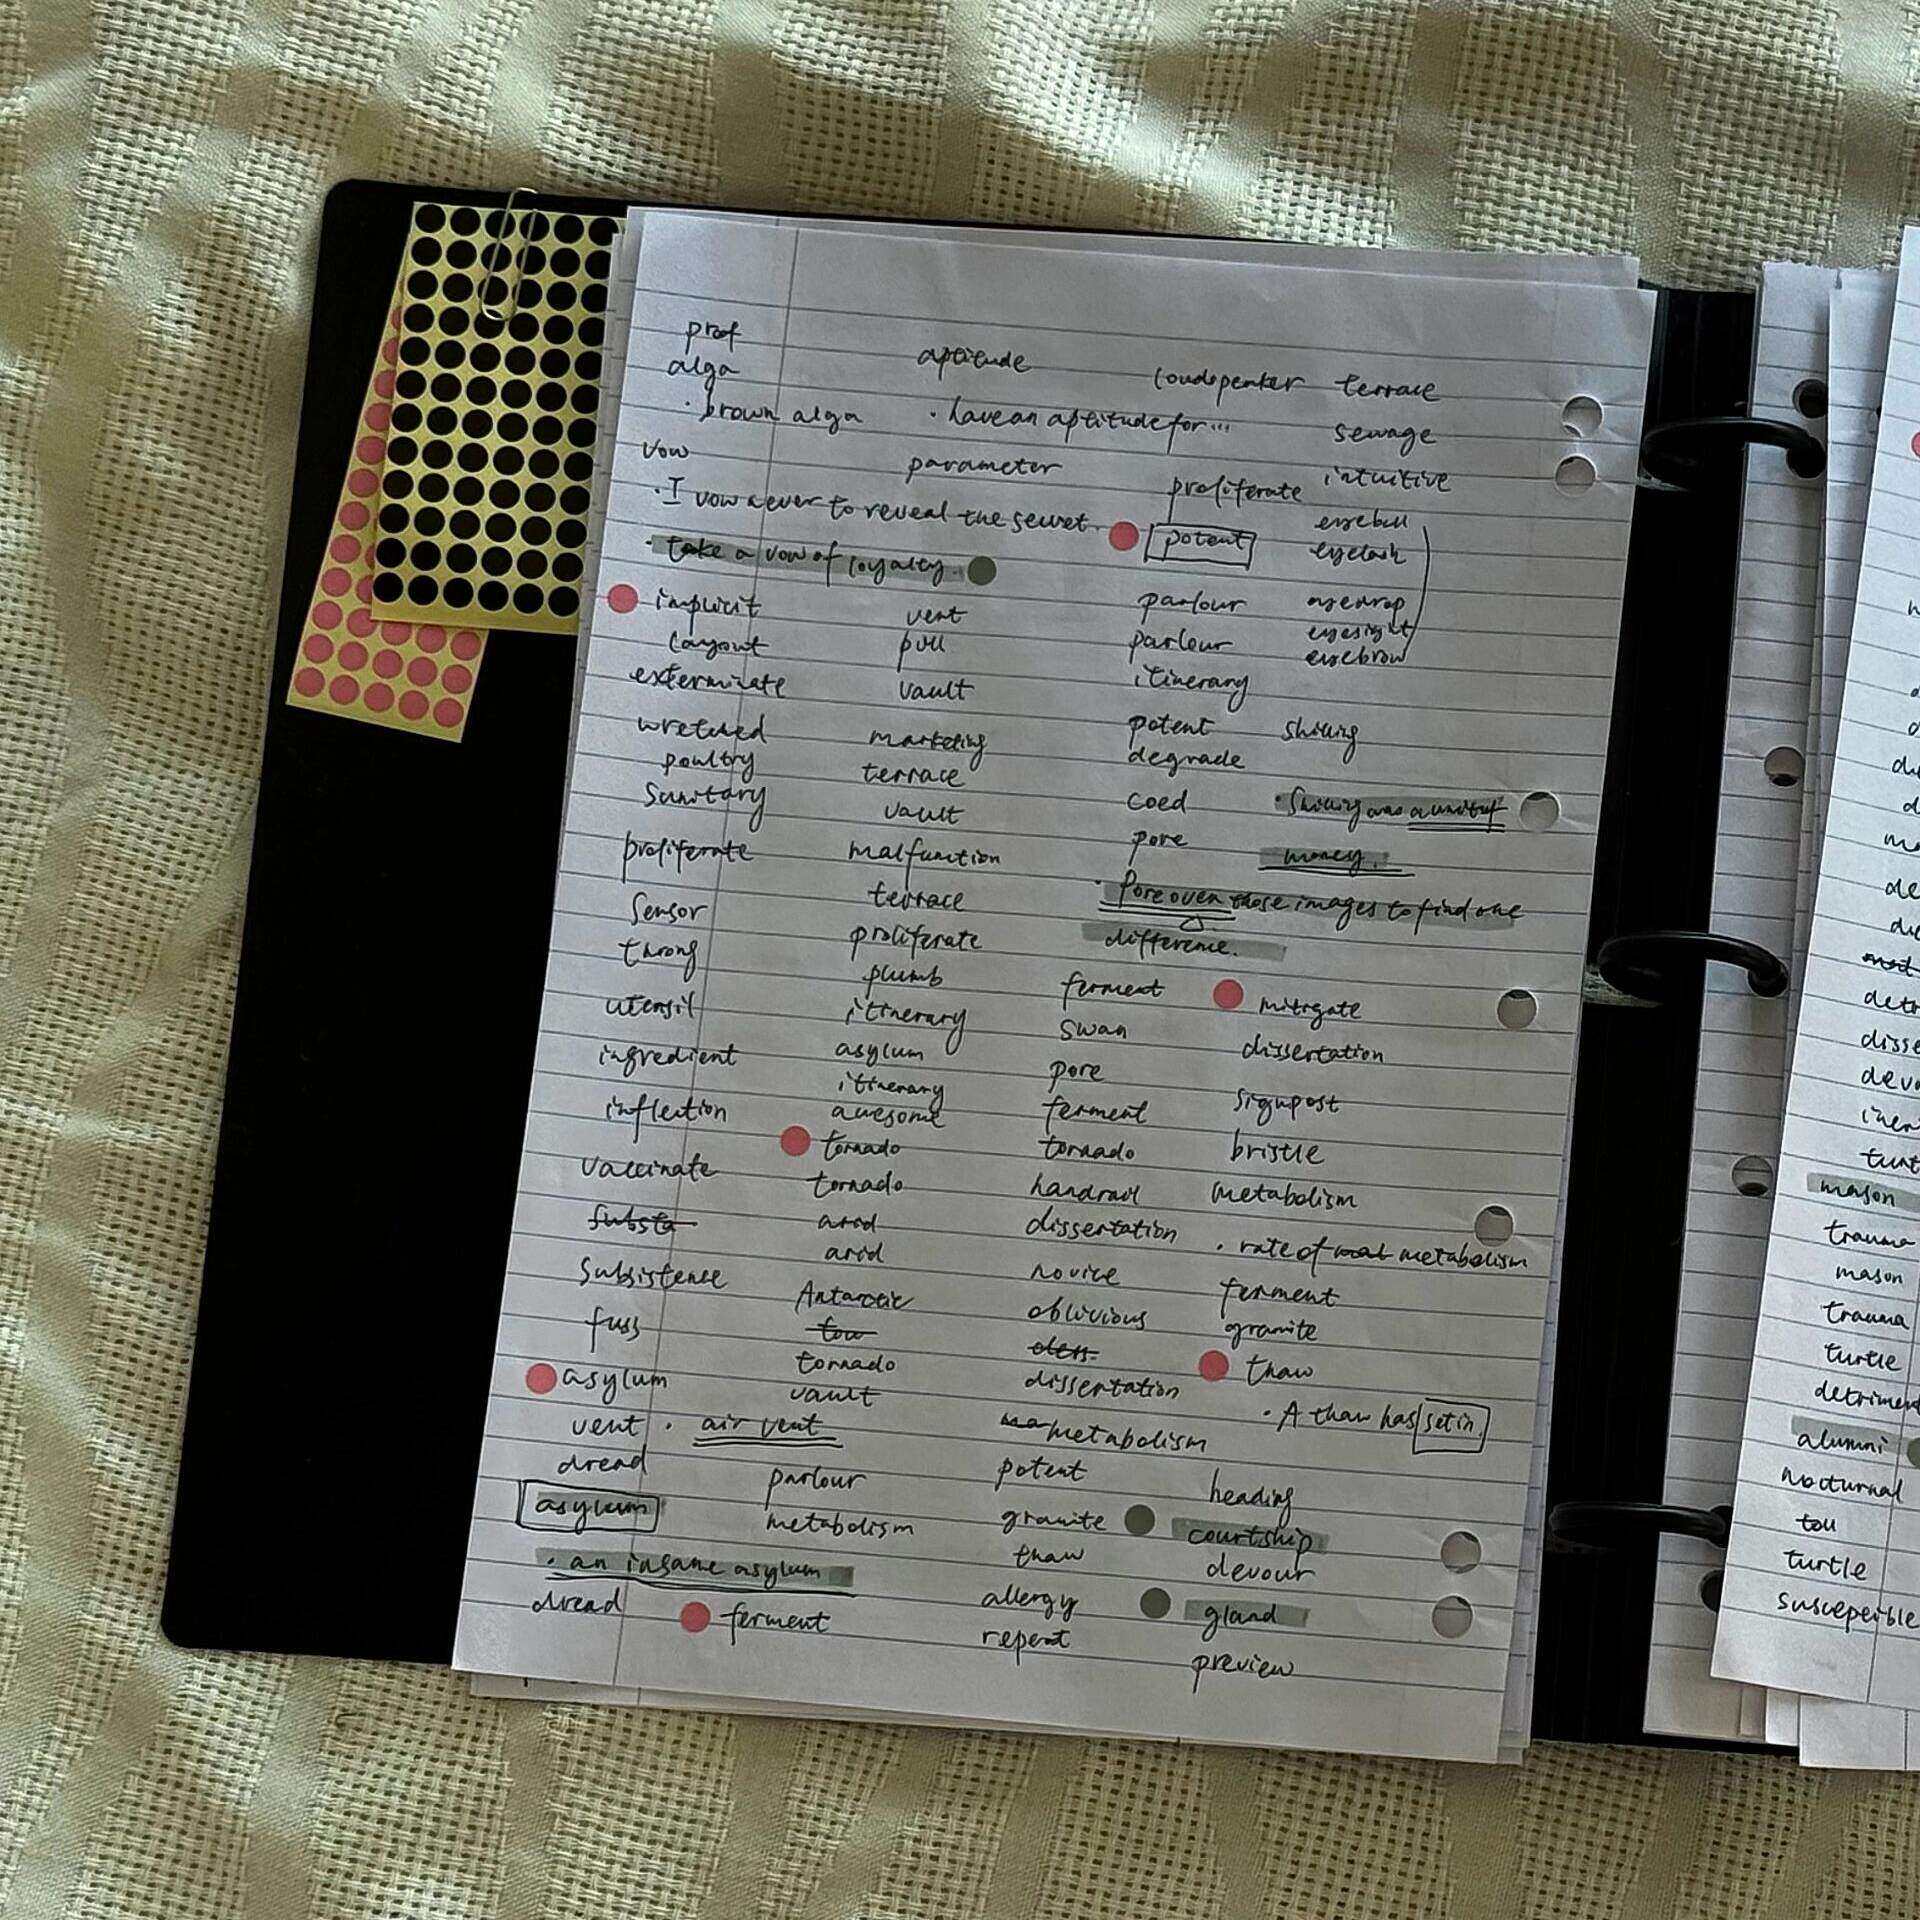 prof
alga
· brown alga
vow
· I vow never to reveal the secret.
· take a vow of loyalty.
implicit
layout
exterminate
wretched
poultry
Sanitary
proliferate
Sensor
throng
utensil
ingredient
inflection
vaccinate
substa
Subsistence
fuss
asylum
vent · air vent
dread
asylum
· an insane asylum
dread
aptitude
· have an aptitude for...
parameter
vent
pull
vault
marketing
terrace
vault
malfunction
terrace
proliferate
plumb
itinerary
asylum
itinerary
awesome
tornado
tornado
arid
arid
Antarctic
tow
tornado
vault
parlour
metabolism
ferment
loudspeaker
proliferate
potent
parlour
parlour
itinerary
potent
degrade
coed
pore
· Pore over those images to find one
difference.
ferment
swan
pore
ferment
tornado
handrail
dissertation
novice
oblivious
dissertation
metabolism
potent
granite
thaw
allergy
repent
terrace
sewage
intuitive
eyeball
eyelash
eyedrop
eyesight
eyebrow
shilling
· Shilling was a unit of
money.
mitigate
dissertation
signpost
bristle
metabolism
· rate of metabolism
ferment
granite
thaw
· A thaw has set in.
heading
courtship
devour
gland
preview
mason
trauma
mason
trauma
turtle
detriment
alumni
nocturnal
turtle